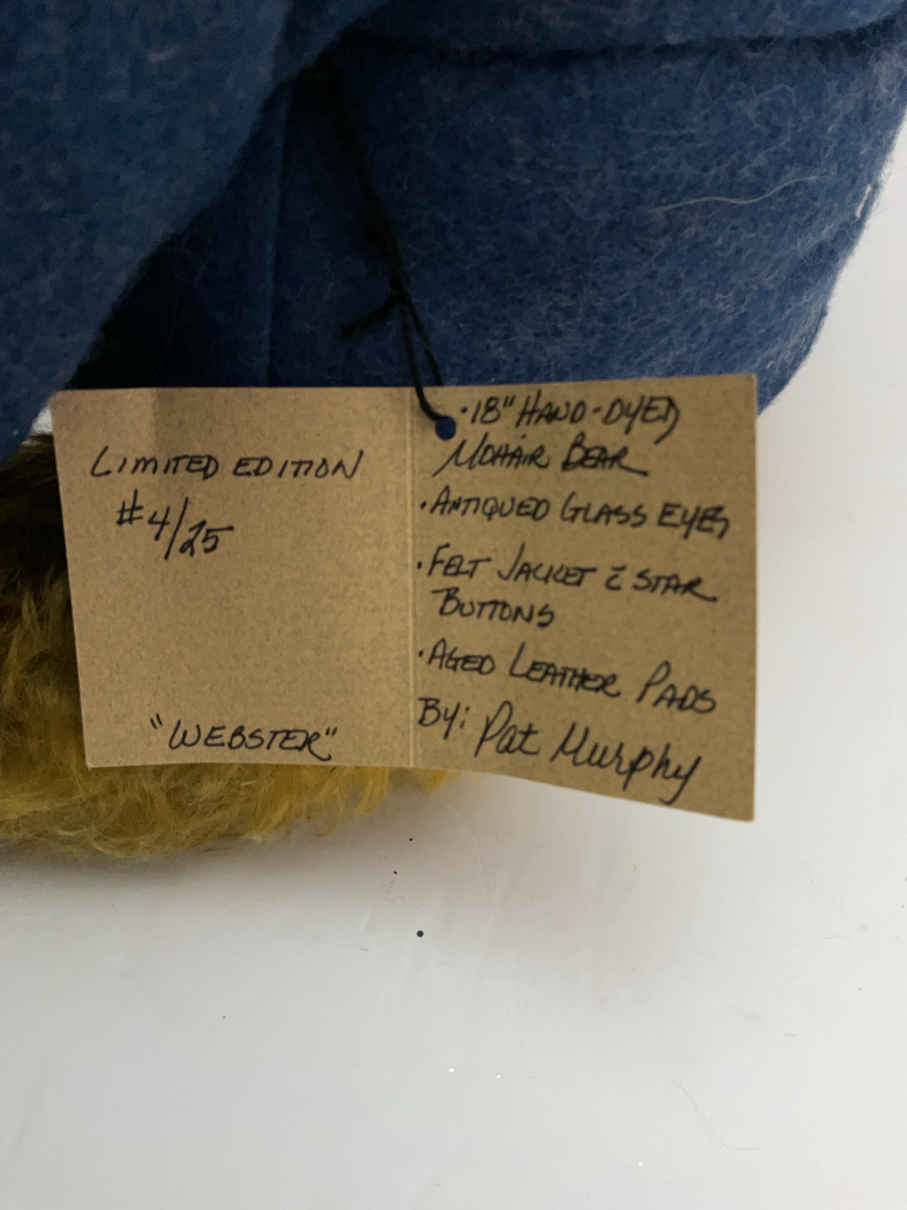 LIMITED EDITION
#4/25
"WEBSTER"
·18" HAND-DYED
MOHAIR BEAR
·ANTIQUED GLASS EYES
·FELT JACKET c̄ STAR
BUTTONS
·AGED LEATHER PADS
BY: Pat Murphy